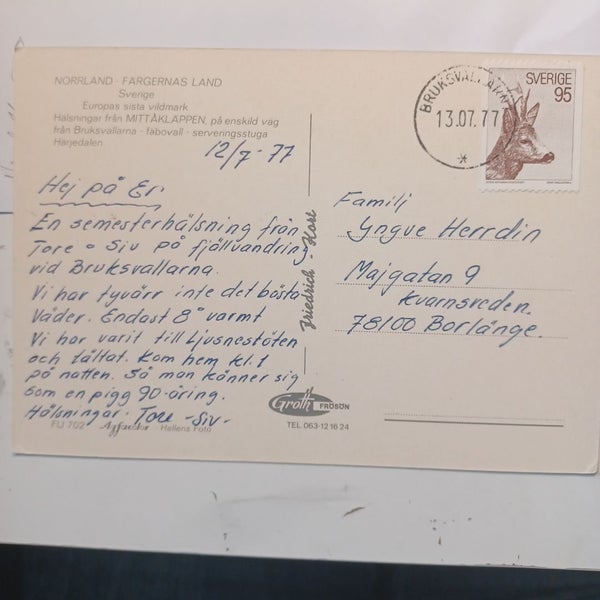 NORRLAND - FÄRGERNAS LAND
Sverige
Europas sista vildmark
Hälsningar från MITTÅKLAPPEN, på enskild väg
från Bruksvallarna - fäbovall - serveringsstuga
Härjedalen
12/7-77
Hej på Er.
En semesterhälsning från
Tore o Siv på fjällvandring
vid Bruksvallarna.
Vi har tyvärr inte det bästa
Väder. Endast 8° varmt
Vi har varit till Ljusnestöten
och tältat. Kom hem kl. 1
på natten. Så man känner sig
som en pigg 90-åring.
Hälsningar. Tore - Siv -
FU 702 Hellens Foto
Friedrich - Kort
Groth FRÖSÖN
TEL 063-12 16 24
BRUKSVALLARNA
13.07.77
SVERIGE
95
Familj
Yngve Herrdin
Majgatan 9
Kvarnsveden.
78100 Borlänge.